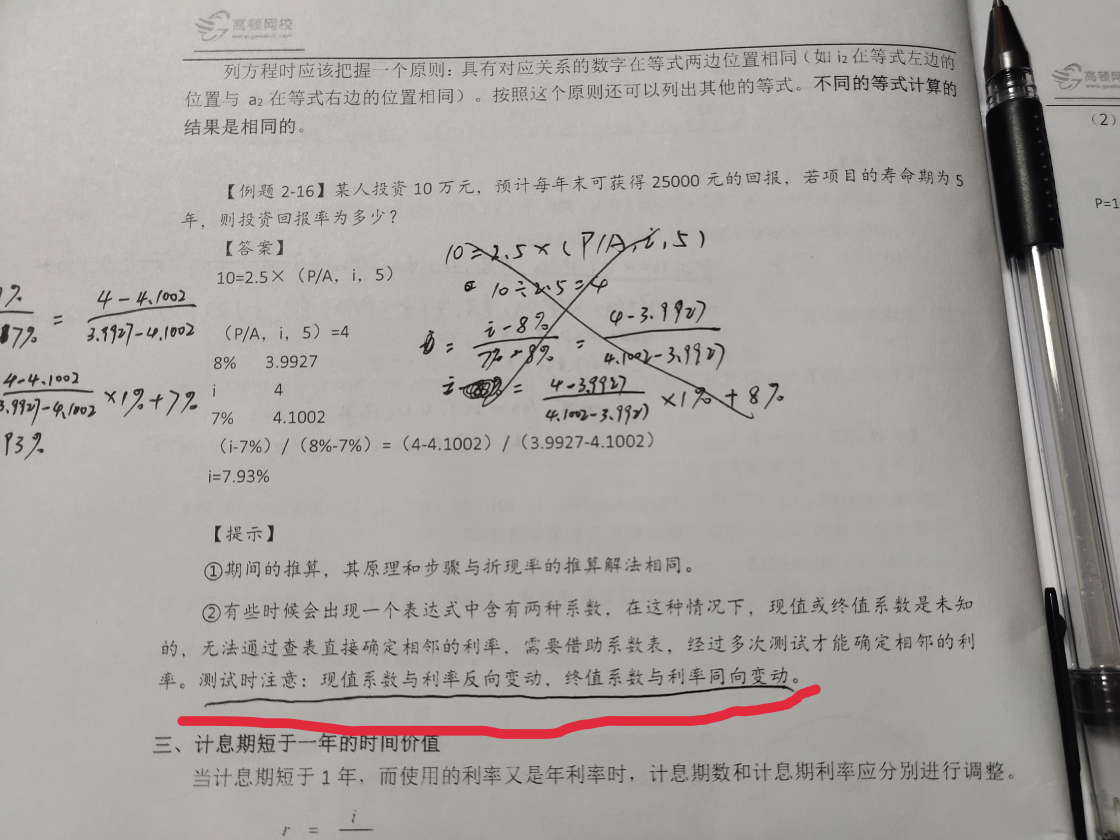 高顿网校
列方程时应该把握一个原则：具有对应关系的数字在等式两边位置相同（如 i₂ 在等式左边的
位置与 a₂ 在等式右边的位置相同）。按照这个原则还可以列出其他的等式。不同的等式计算的
结果是相同的。
【例题 2-16】某人投资 10 万元，预计每年末可获得 25000 元的回报，若项目的寿命期为 5
年，则投资回报率为多少？
【答案】
10=2.5×（P/A，i，5）
（P/A，i，5）=4
8% 3.9927
i 4
7% 4.1002
（i-7%）/（8%-7%）=（4-4.1002）/（3.9927-4.1002）
i=7.93%
10=2.5×(P/A,i,5)
10÷2.5=4
= i-8% / 7%-8% = 4-3.9927 / 4.1002-3.9927
i = 4-3.9927 / 4.1002-3.9927 ×1% + 8%
7% / 87% = 4-4.1002 / 3.9927-4.1002
4-4.1002 / 3.9927-4.1002 ×1%+7%
93%
【提示】
①期间的推算，其原理和步骤与折现率的推算解法相同。
②有些时候会出现一个表达式中含有两种系数，在这种情况下，现值或终值系数是未知
的，无法通过查表直接确定相邻的利率，需要借助系数表，经过多次测试才能确定相邻的利
率。测试时注意：现值系数与利率反向变动，终值系数与利率同向变动。
三、计息期短于一年的时间价值
当计息期短于 1 年，而使用的利率又是年利率时，计息期数和计息期利率应分别进行调整。
r = i
高顿网校
（2）
P=1